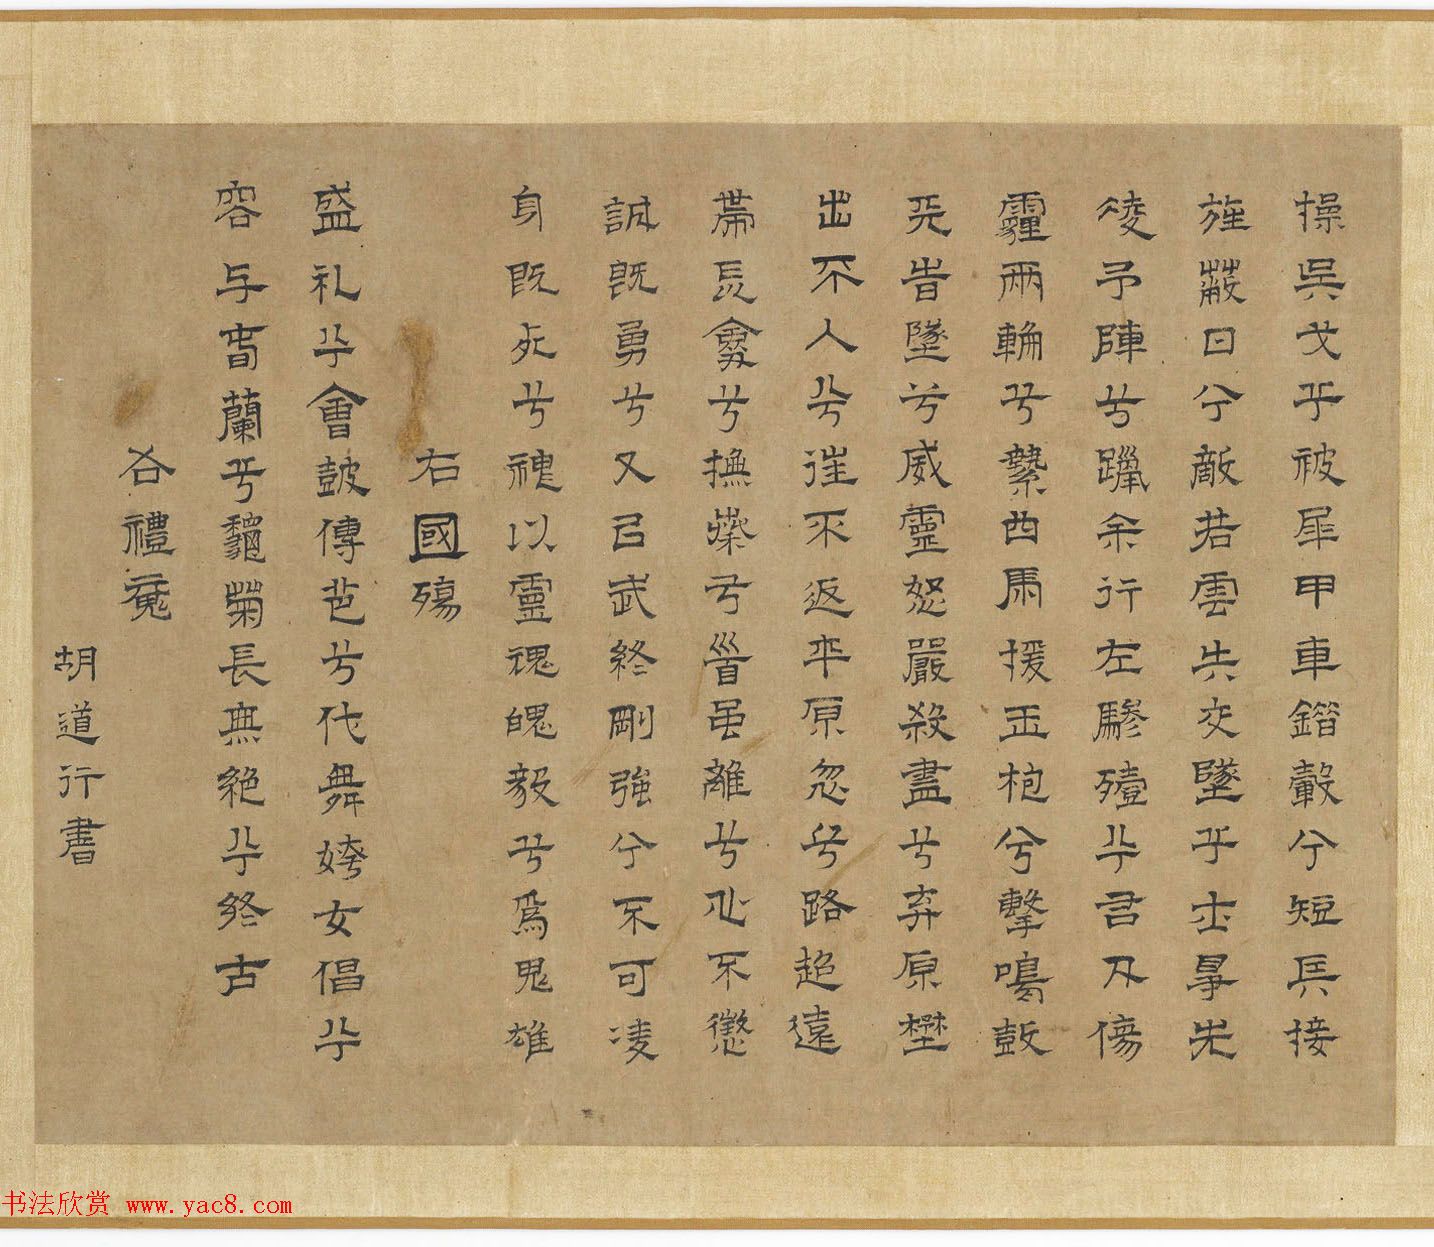 操吳戈兮被犀甲車錯轂兮短兵接
旌蔽日兮敵若雲矢交墜兮士爭先
凌予陣兮躐余行左驂殪兮君刃傷
霾兩輪兮縶四馬援玉枹兮擊鳴鼓
天時墜兮威靈怒嚴殺盡兮弃原壄
出不入兮往不返平原忽兮路超遠
帶長劒兮挾秦弓首雖離兮心不懲
誠既勇兮又以武終剛強兮不可凌
身既死兮神以靈魂魄毅兮爲鬼雄
右國殤
盛礼兮會鼓傳芭兮代舞姱女倡兮
容与春蘭兮秋菊長無絕兮終古
右禮魂
胡道行書
书法欣赏 www.yac8.com